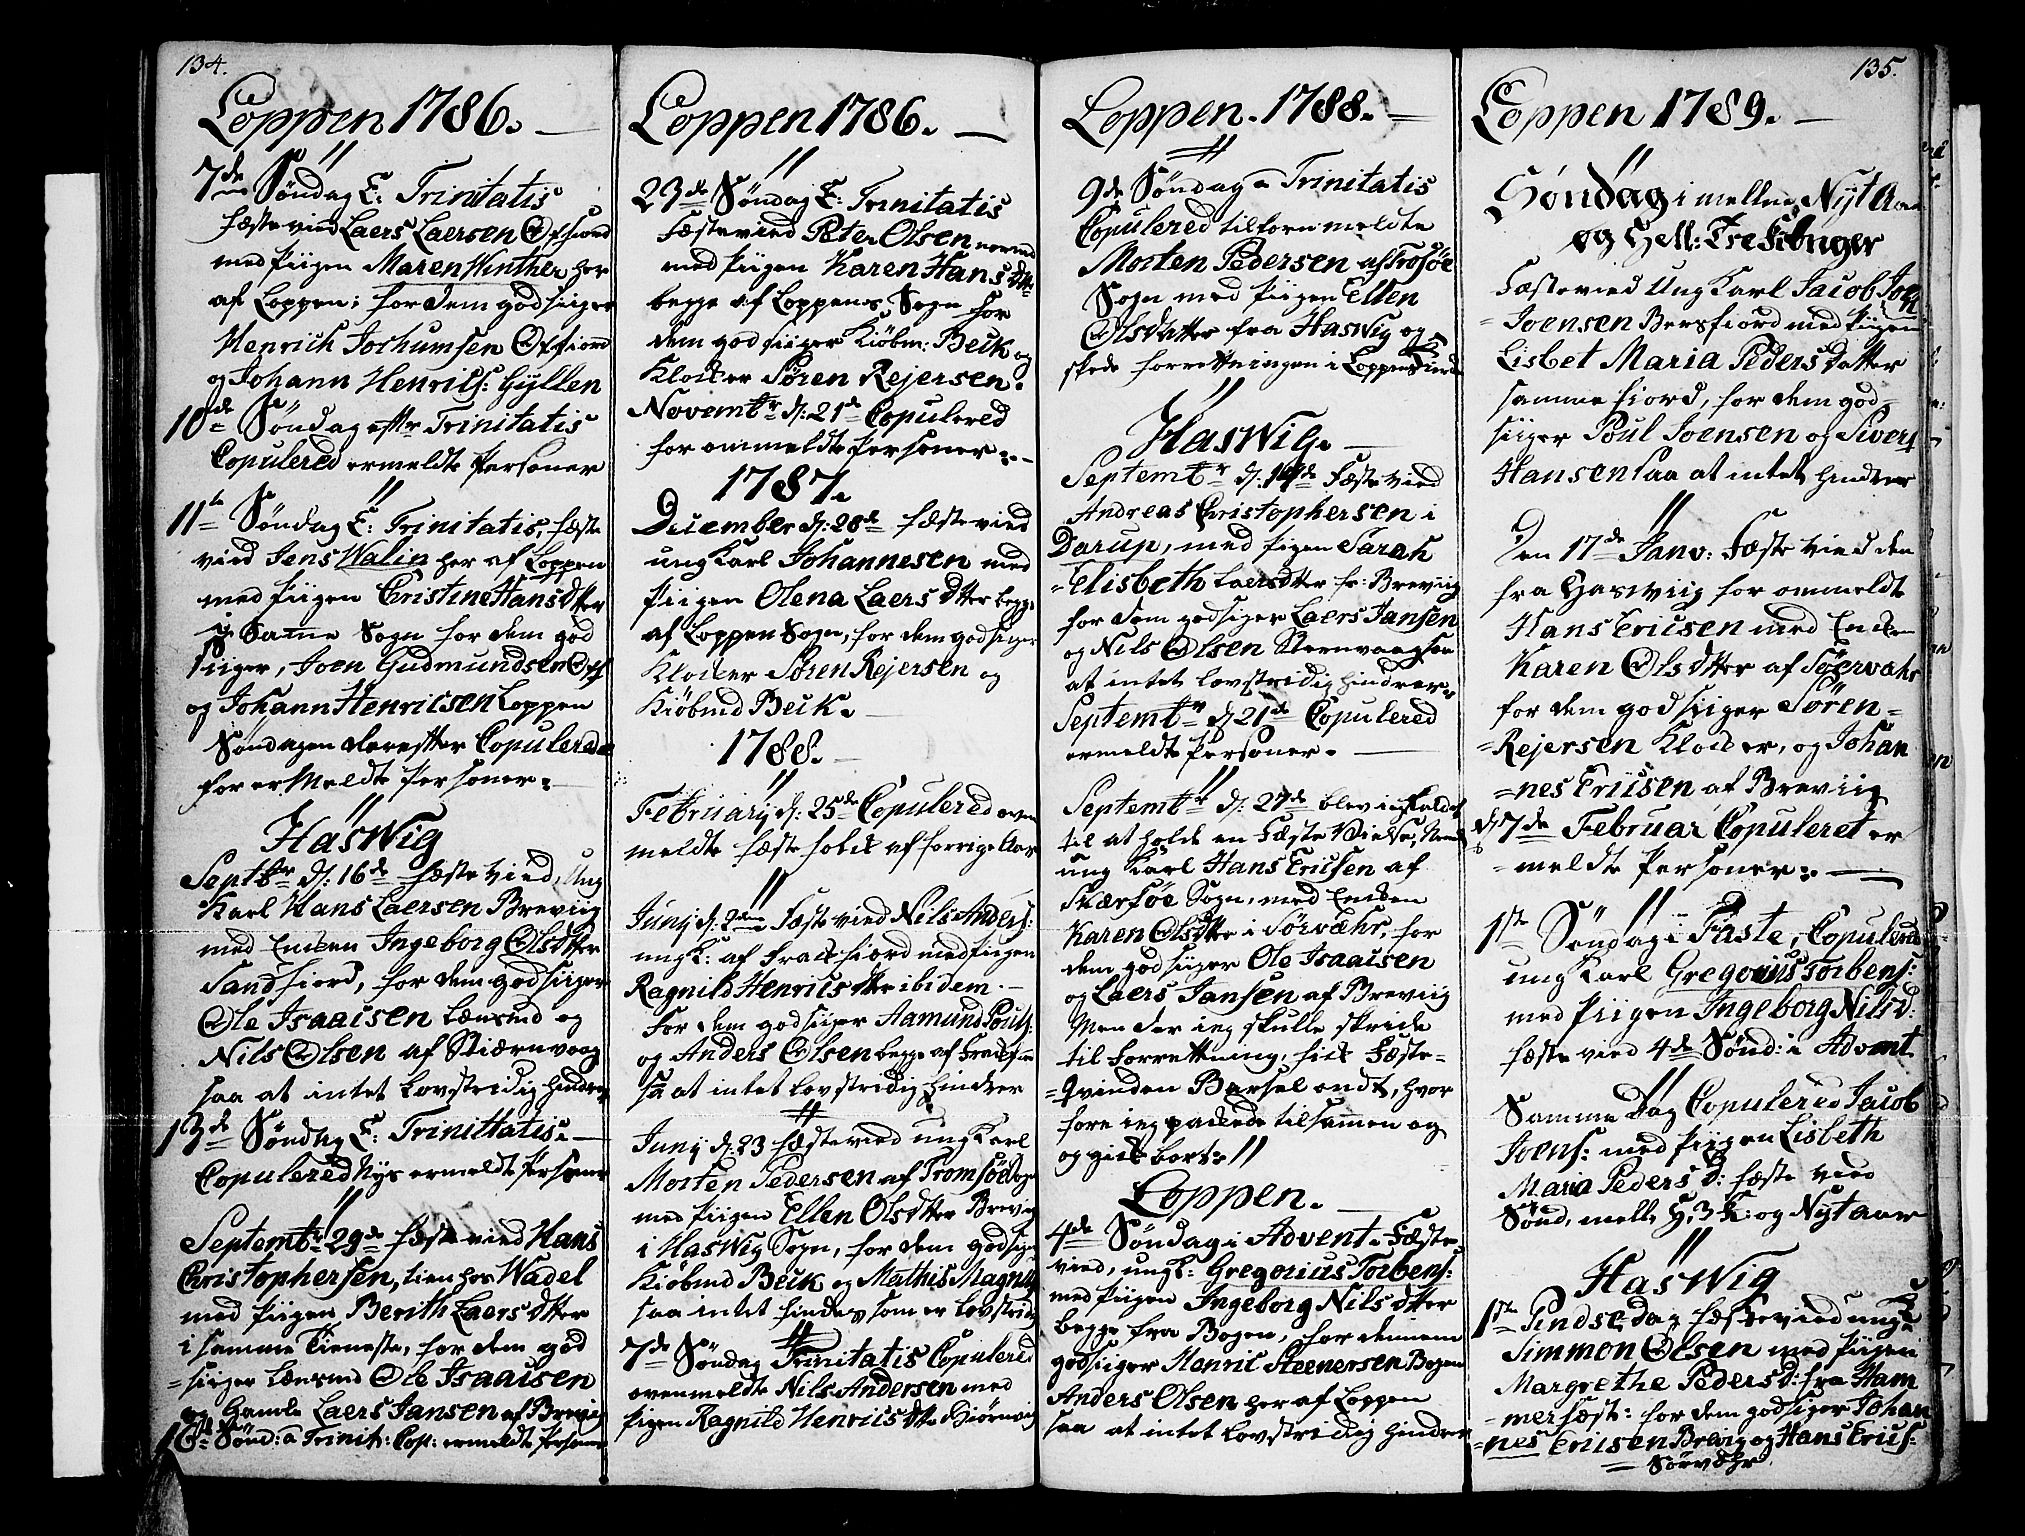 134.
Loppen 1786.
7de Søndag E: Trinitatis
fæstevied Laers Laersen Øxfiord
med Piigen Maren Winther her
af Loppen; for dem godsiiger
Henrich Jochumsen Øxfiord
og Johann Henrils: Gyllen
10de Søndag efftr Trinitatis
Copulered ermeldte Personer
11te Søndag E: Trinitatis, fæste
vied Jens Walin her af Loppen
med Piigen Cristine Hansdtter
i Samme Sogn for dem god
siiger, Joen Gudmundsen Øxf
og Johann Henricsen Loppen
Søndagen derefter Copulerede
for ermeldte Personer.
Haswig
Septbr d: 16de fæstevied, Ung
Karl Hans Laersen Breviig
med Enken Ingeborg Olsdtter
Sandfiord, for dem godsiiger
Ole Isaaisen Lænsmd og
Nils Olsen af Stiærnvaag
saa at intet Lovstridig hindrer
13de Søndag E: Trinittatis.
Copulered Nys ermeldte Personer
Septembr 29de fæstevied Hans
Christophersen, tien hos Wadel
med Piigen Berith Laersdtter
i samme Tieneste, for dem god
siiger Lænsmd Ole Isaaisen
og Gamle Laers Jansen af Brevig
16de Sønd: a Trinit: Cop: ermeldte Persone
Loppen 1786.
23de Søndag E: Trinitatis
Fæstevied Peter Olsen
med Piigen Karen Hansdtter
begge af Loppens Sogn for
dem god siiger Kiøbm: Beck og
Klocker Søren Rejersen.
Novembr d: 21de Copulered
for ommeldte Personer.
1787.
December d: 28de fæstevied
ung Karl Johannesen med
Piigen Olena Laersdtter begge
af Loppen Sogn, for dem godsiiger
Klocker Søren Rejersen og
Kiøbmd Beck.
1788.
Februarij d: 25de Copulered oven
meldte fæstefolck af forrige Aar
Junij d: 2den Fæstevied Nils Anders:
ungk: af Frackfiord med Piigen
Ragnild Henricsdtter ibidem.
For dem godsiiger Aamund Pouls:
og Anders Olsen begge af Frackfior
sa at intet Lovstridig hindrer
Junij d: 23 fæstevied ung Karl
Morten Pedersen af Tromsøe Sogn
med Piigen Ellen Olsdtter Brevig
i Haswig Sogn, for dem godsiger
Kiøbmd Beck og Mathis Magnus
saa intet findes som er Lovstridig
7de Søndag Trinitatis Copulered
ovenmeldte Nils Andersen med
Pigen Ragnild Henricsdtter
Loppen. 1788.
9de Søndag a Trinitatis
Copulered tilforn meldte
Morten Pedersen af Trosøe
Sogn med Piigen Ellen
Olsdatter fra Haswig og
skede forrettningen i Loppen
Haswig.
Septembr d: 14de Fæstevied
Andreas Christophersen i
Darup, med Pigen Sarah
Elisbeth Laersdtter fr: Breviig
for dem godsiger Laers Jansen
og Nils Olsen Sternvaag saa
at intet Lovstridig hindrer
Septembr d 21de Copulered
ermeldte Personer.
Septembr d: 27de blev ieg kaldet
til at holde en Fæste Vielse, Nemlig
ung Karl Hans Ericsen af
Skiærføe Sogn, med Encken
Karen Olsdtter i Sørvæhr, for
dem godsiiger Ole Isaaisen
og Laers Jansen af Breviig
Men der ieg skulle skride
til Forrettning, fick Fæste-
Qvinden Barsel ondt, hvor
fore ieg packede tilsamen og
og gick bort.
Loppen.
4de Søndag i Advent Fæste
vied, ungk: Gregorius Torbens:
med Piigen Ingeborg Nilsdtter
begge fra Bogen, for dennem
godsiiger Henric Steenersen Bogen
Anders Olsen her af Loppen
saa at intet Lovstridig hindrer
135.
Loppen 1789.
Søndag i mellem Nyt Aar
og Hell: Tre Konger
Fæstevied Ungkarl Jacob Joen
Joensen Bersfiord med Piigen
Lisbet Maria Peders Datter
samme fiord, for dem god
siiger Poul Joensen og Sivert
Hansen saa at intet hindrer
Den 17de Janv: Fæstevied den
fra Haswiig for ommeldte
Hans Ericsen med Encken
Karen Olsdtter af Søervahr
for dem godsiiger Søren
Rejersen Klocker, og Johan
nes Ericsen af Breviig
d 7de Februar Copuleret er
meldte Personer.
1ste Søndag i Faste, Copulered
ung Karl Gregorius Torbens:
med Piigen Ingeborg Nilsd:
fæstevied 4de Sønd: i Advent
Samme Dag Copulered Jacob
Joens: med Piigen Lisbeth
Maria Peders D: fæste vied
Sønd. mell. H. 3 K: og Nyt aar
Haswig
1ste Pindsedag fæstevied ungk
Simmon Olsen med Piigen
Margrethe Pedersd: fra Ham
merfæst: for dem godsiger Johan
nes Ericsen Brevig og Hans Erics:
Sørvæhr.